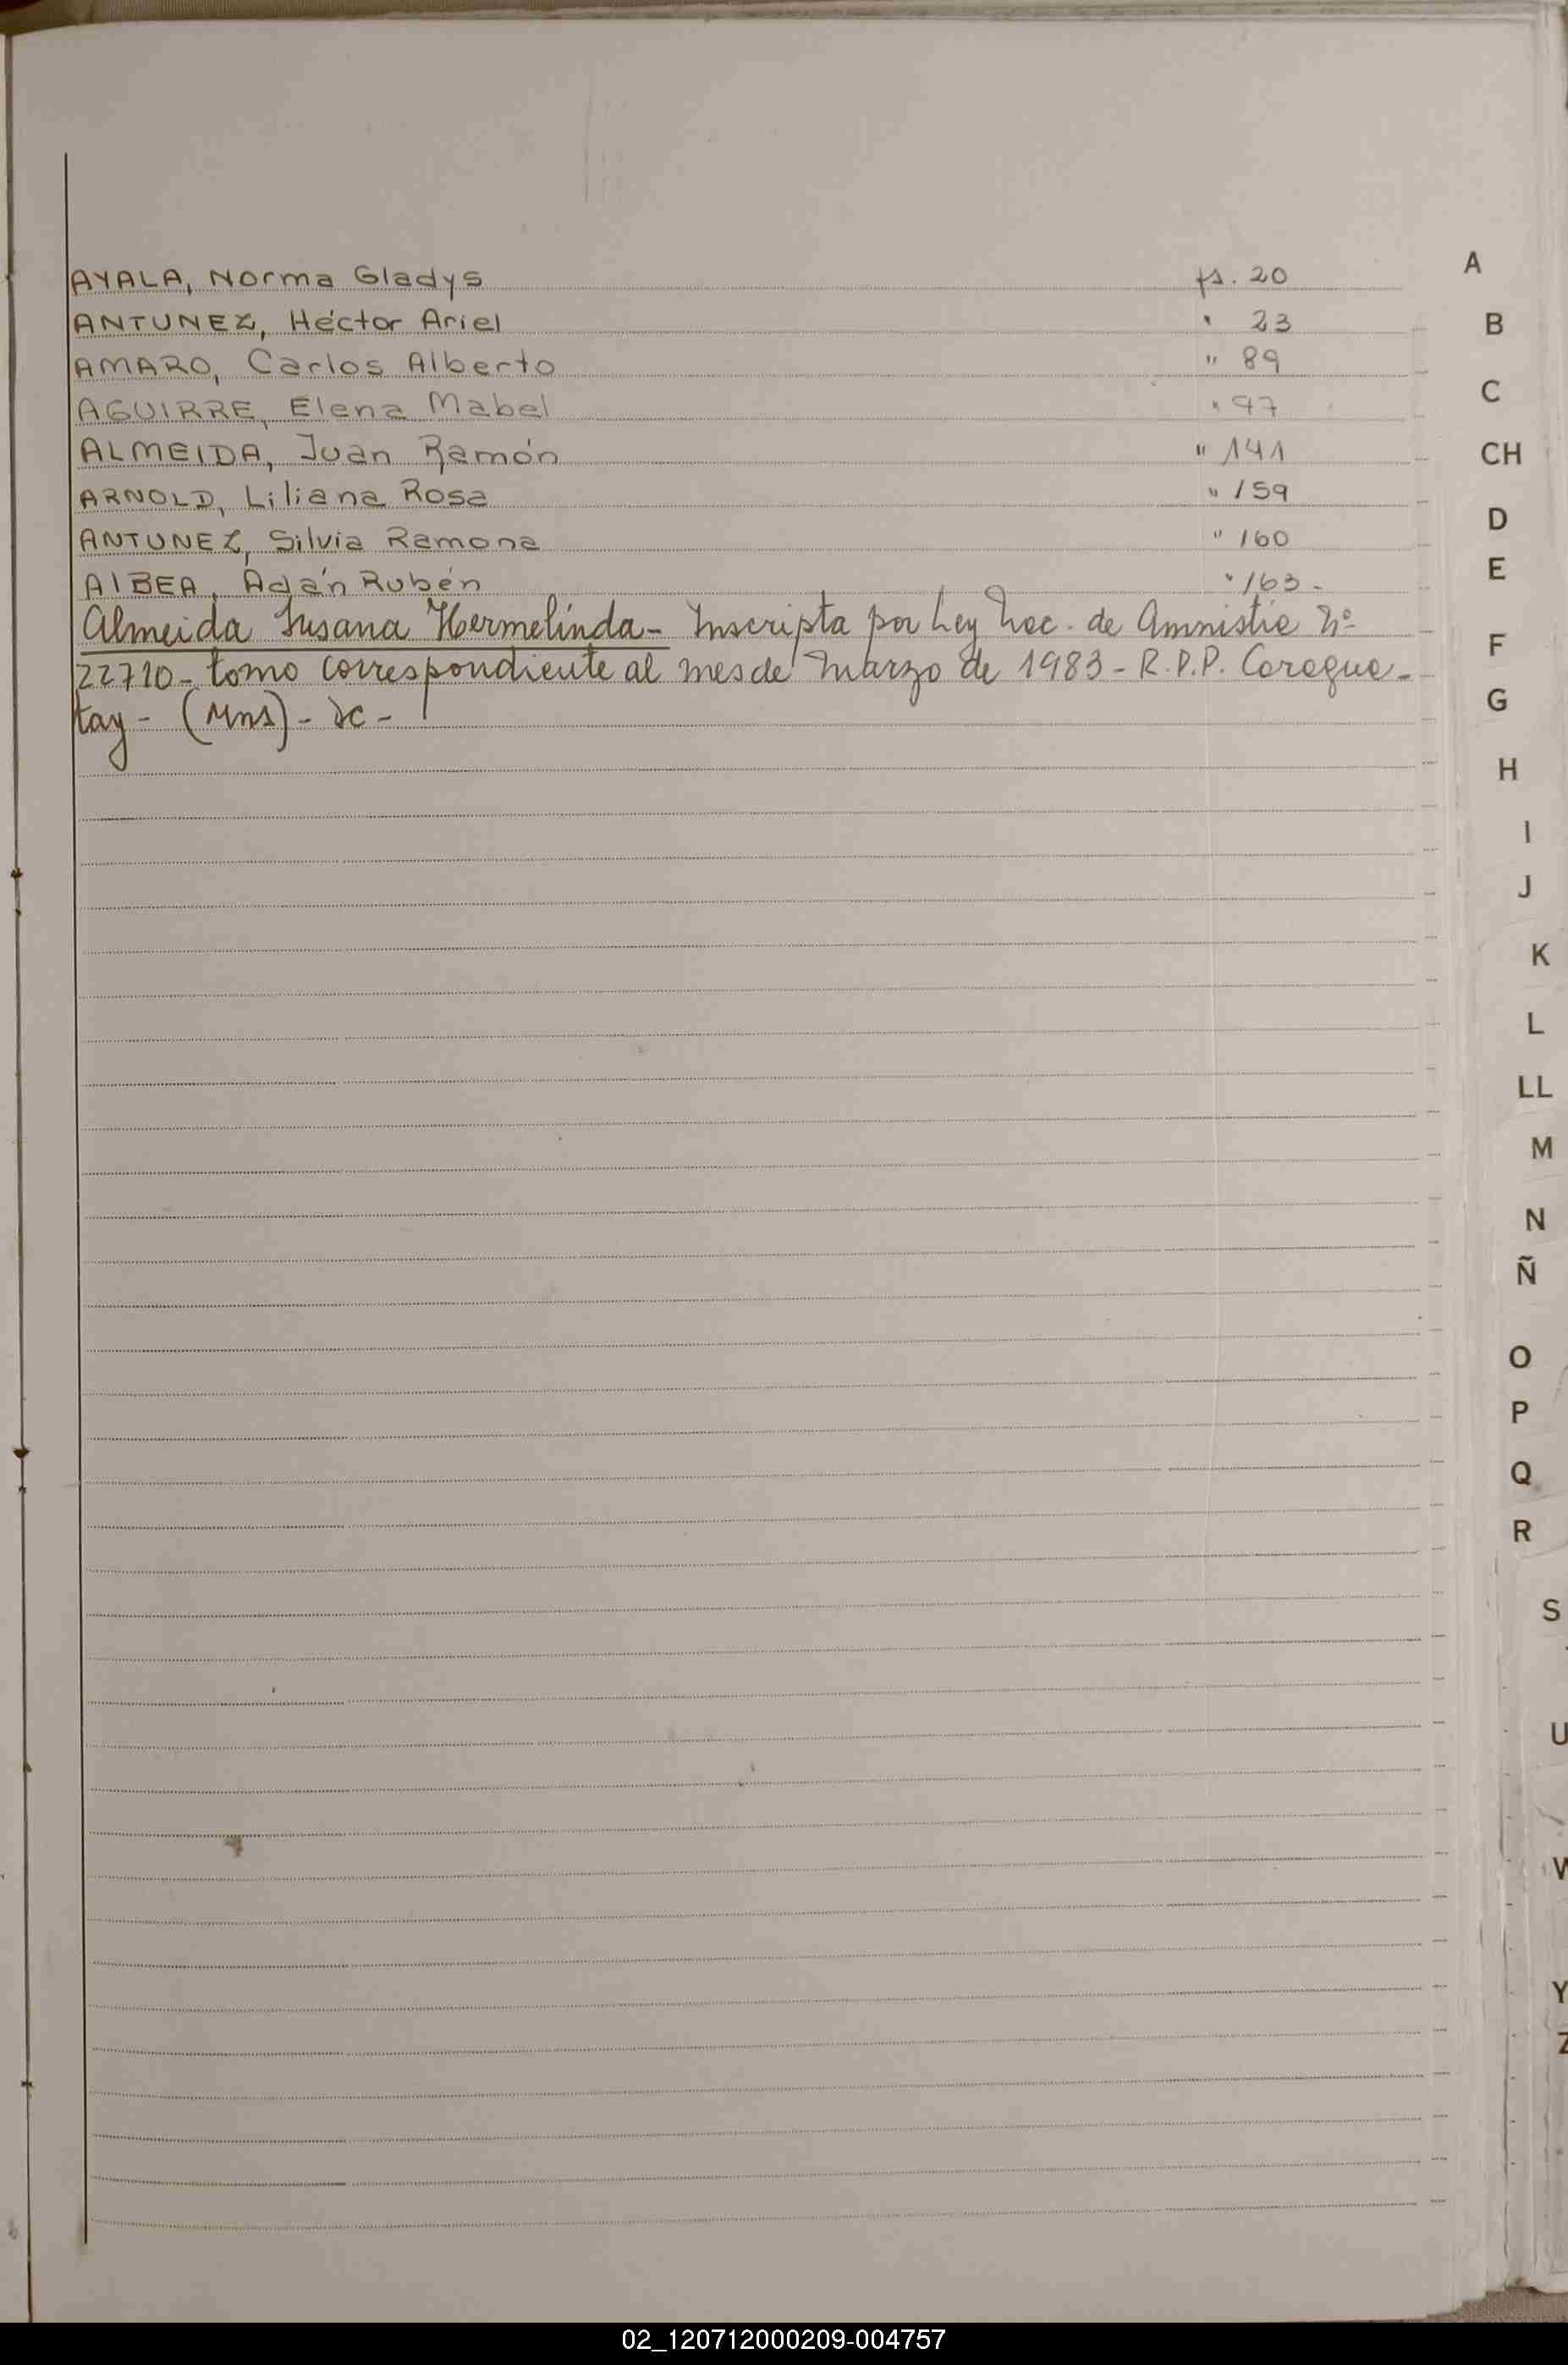 AYALA, Norma Gladys fs. 20
ANTUNEZ, Héctor Ariel " 23
AMARO, Carlos Alberto " 89
AGUIRRE, Elena Mabel " 97
ALMEIDA, Juan Ramón " 141
ARNOLD, Liliana Rosa " 159
ANTUNEZ, Silvia Ramona " 160
ALBEA, Adán Rubén " 163-
Almeida Susana Hermelinda- Inscripta por Ley Nac. de Amnistia Nº
22710- tomo correspondiente al mes de Marzo de 1983- R.P.P. Caragua-
tay- (Mns)-
A
B
C
CH
D
E
F
G
H
I
J
K
L
LL
M
N
Ñ
O
P
Q
R
S
U
W
Y
Z
02_120712000209-004757